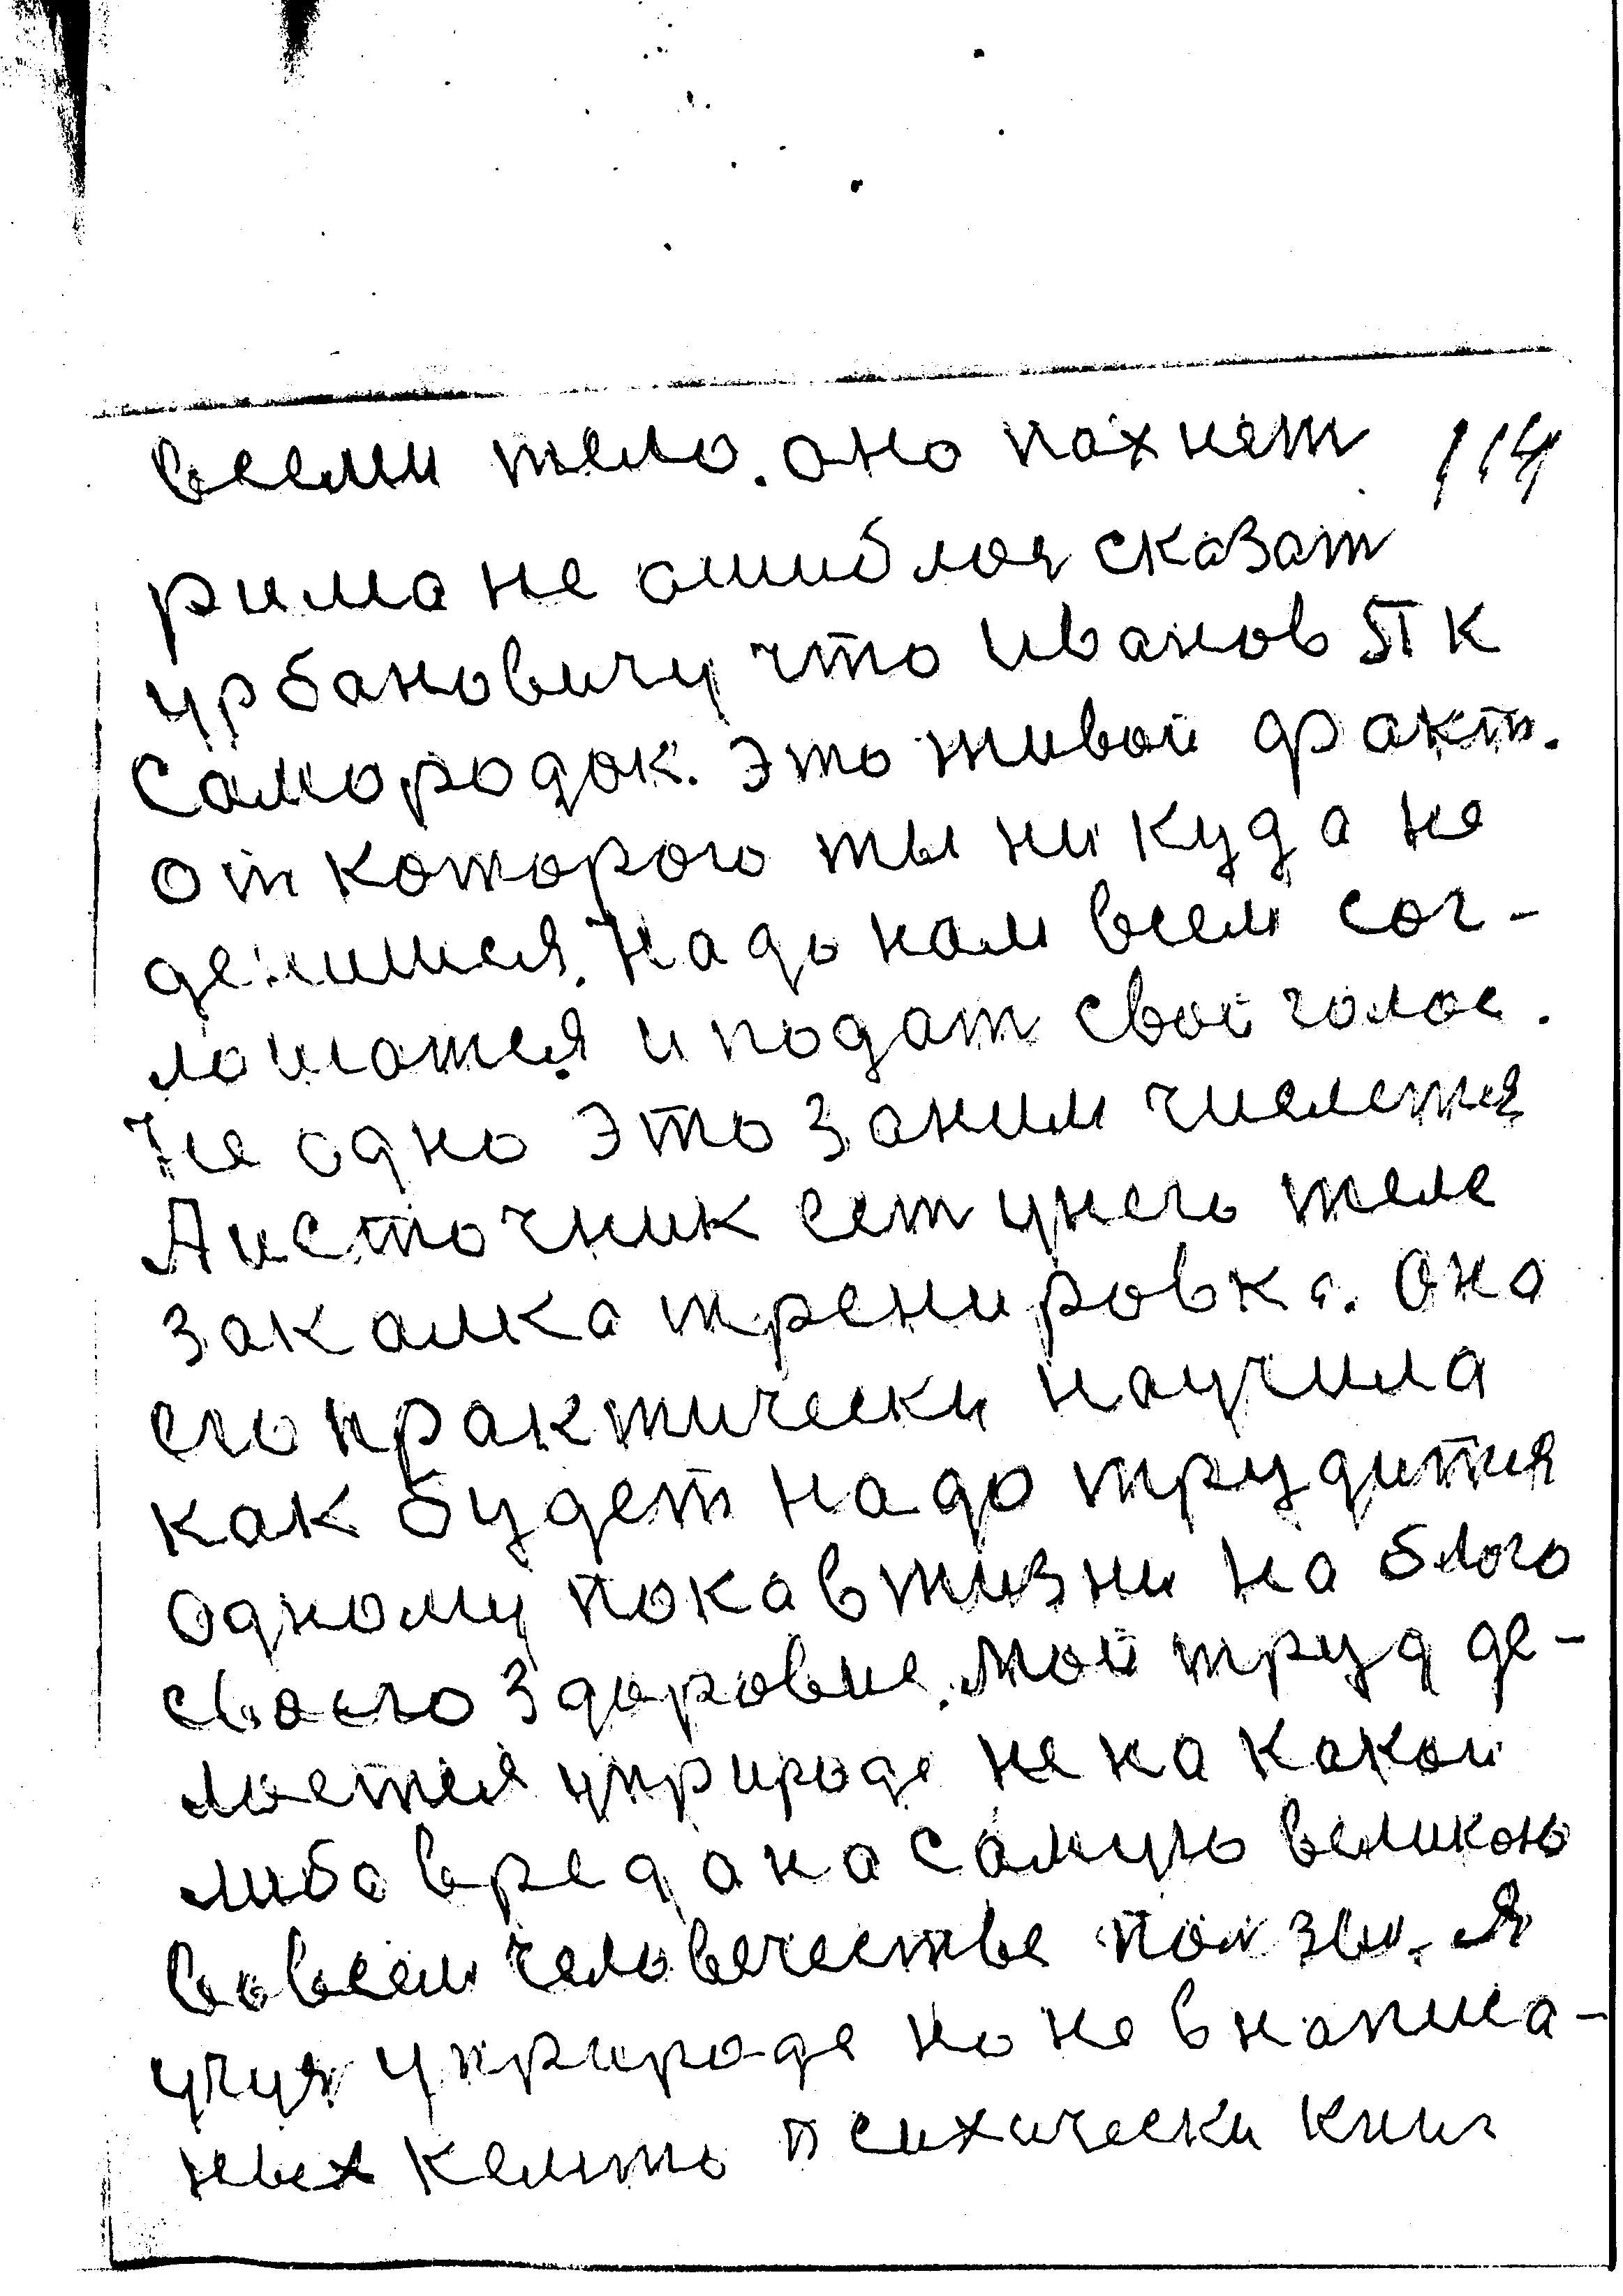 всеми тело. оно пахнет 114
рима не ошиблоя сказат
урбановичу что иванов ПК
Самородок. это живой факт.
от которого ты никуда не
денишся. Надо нам всем сог-
лошатся и подат свой голос.
Не одно это заним числется
А источник ест унего теле
закалка тренировка. она
его практически научила
как будет надо трудится
одному пока в жизни на блого
своего здоровие. мой труд де-
лается уприроде не на какой
либо вред а на самую великою
во всем человечестве ползы. я
учуя уприроде но не в написа-
ных кемто психически книг